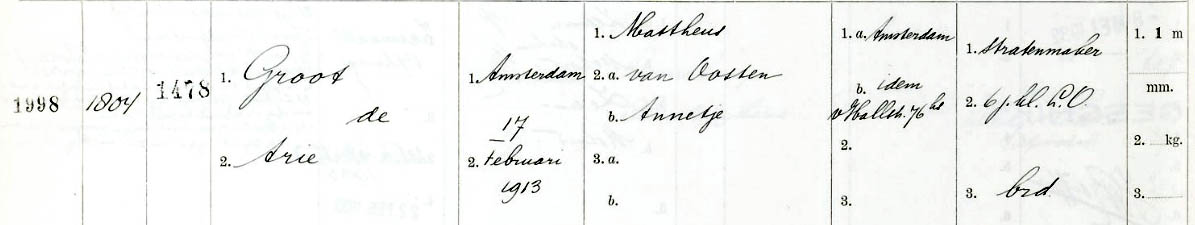 1998
1804
1478
1. Groot
de
2. Arie
1. Amsterdam
17
2. Februari
1913
1. Mattheus
2. a. van Oosten
b. Annetje
3. a.
b.
1. a. Amsterdam
b. idem
v Hallstr. 76 hs
2.
3.
1. Stratenmaker
2. 6 j. kl. L.O.
3. brd.
1. 1 m
mm.
2. kg.
3.